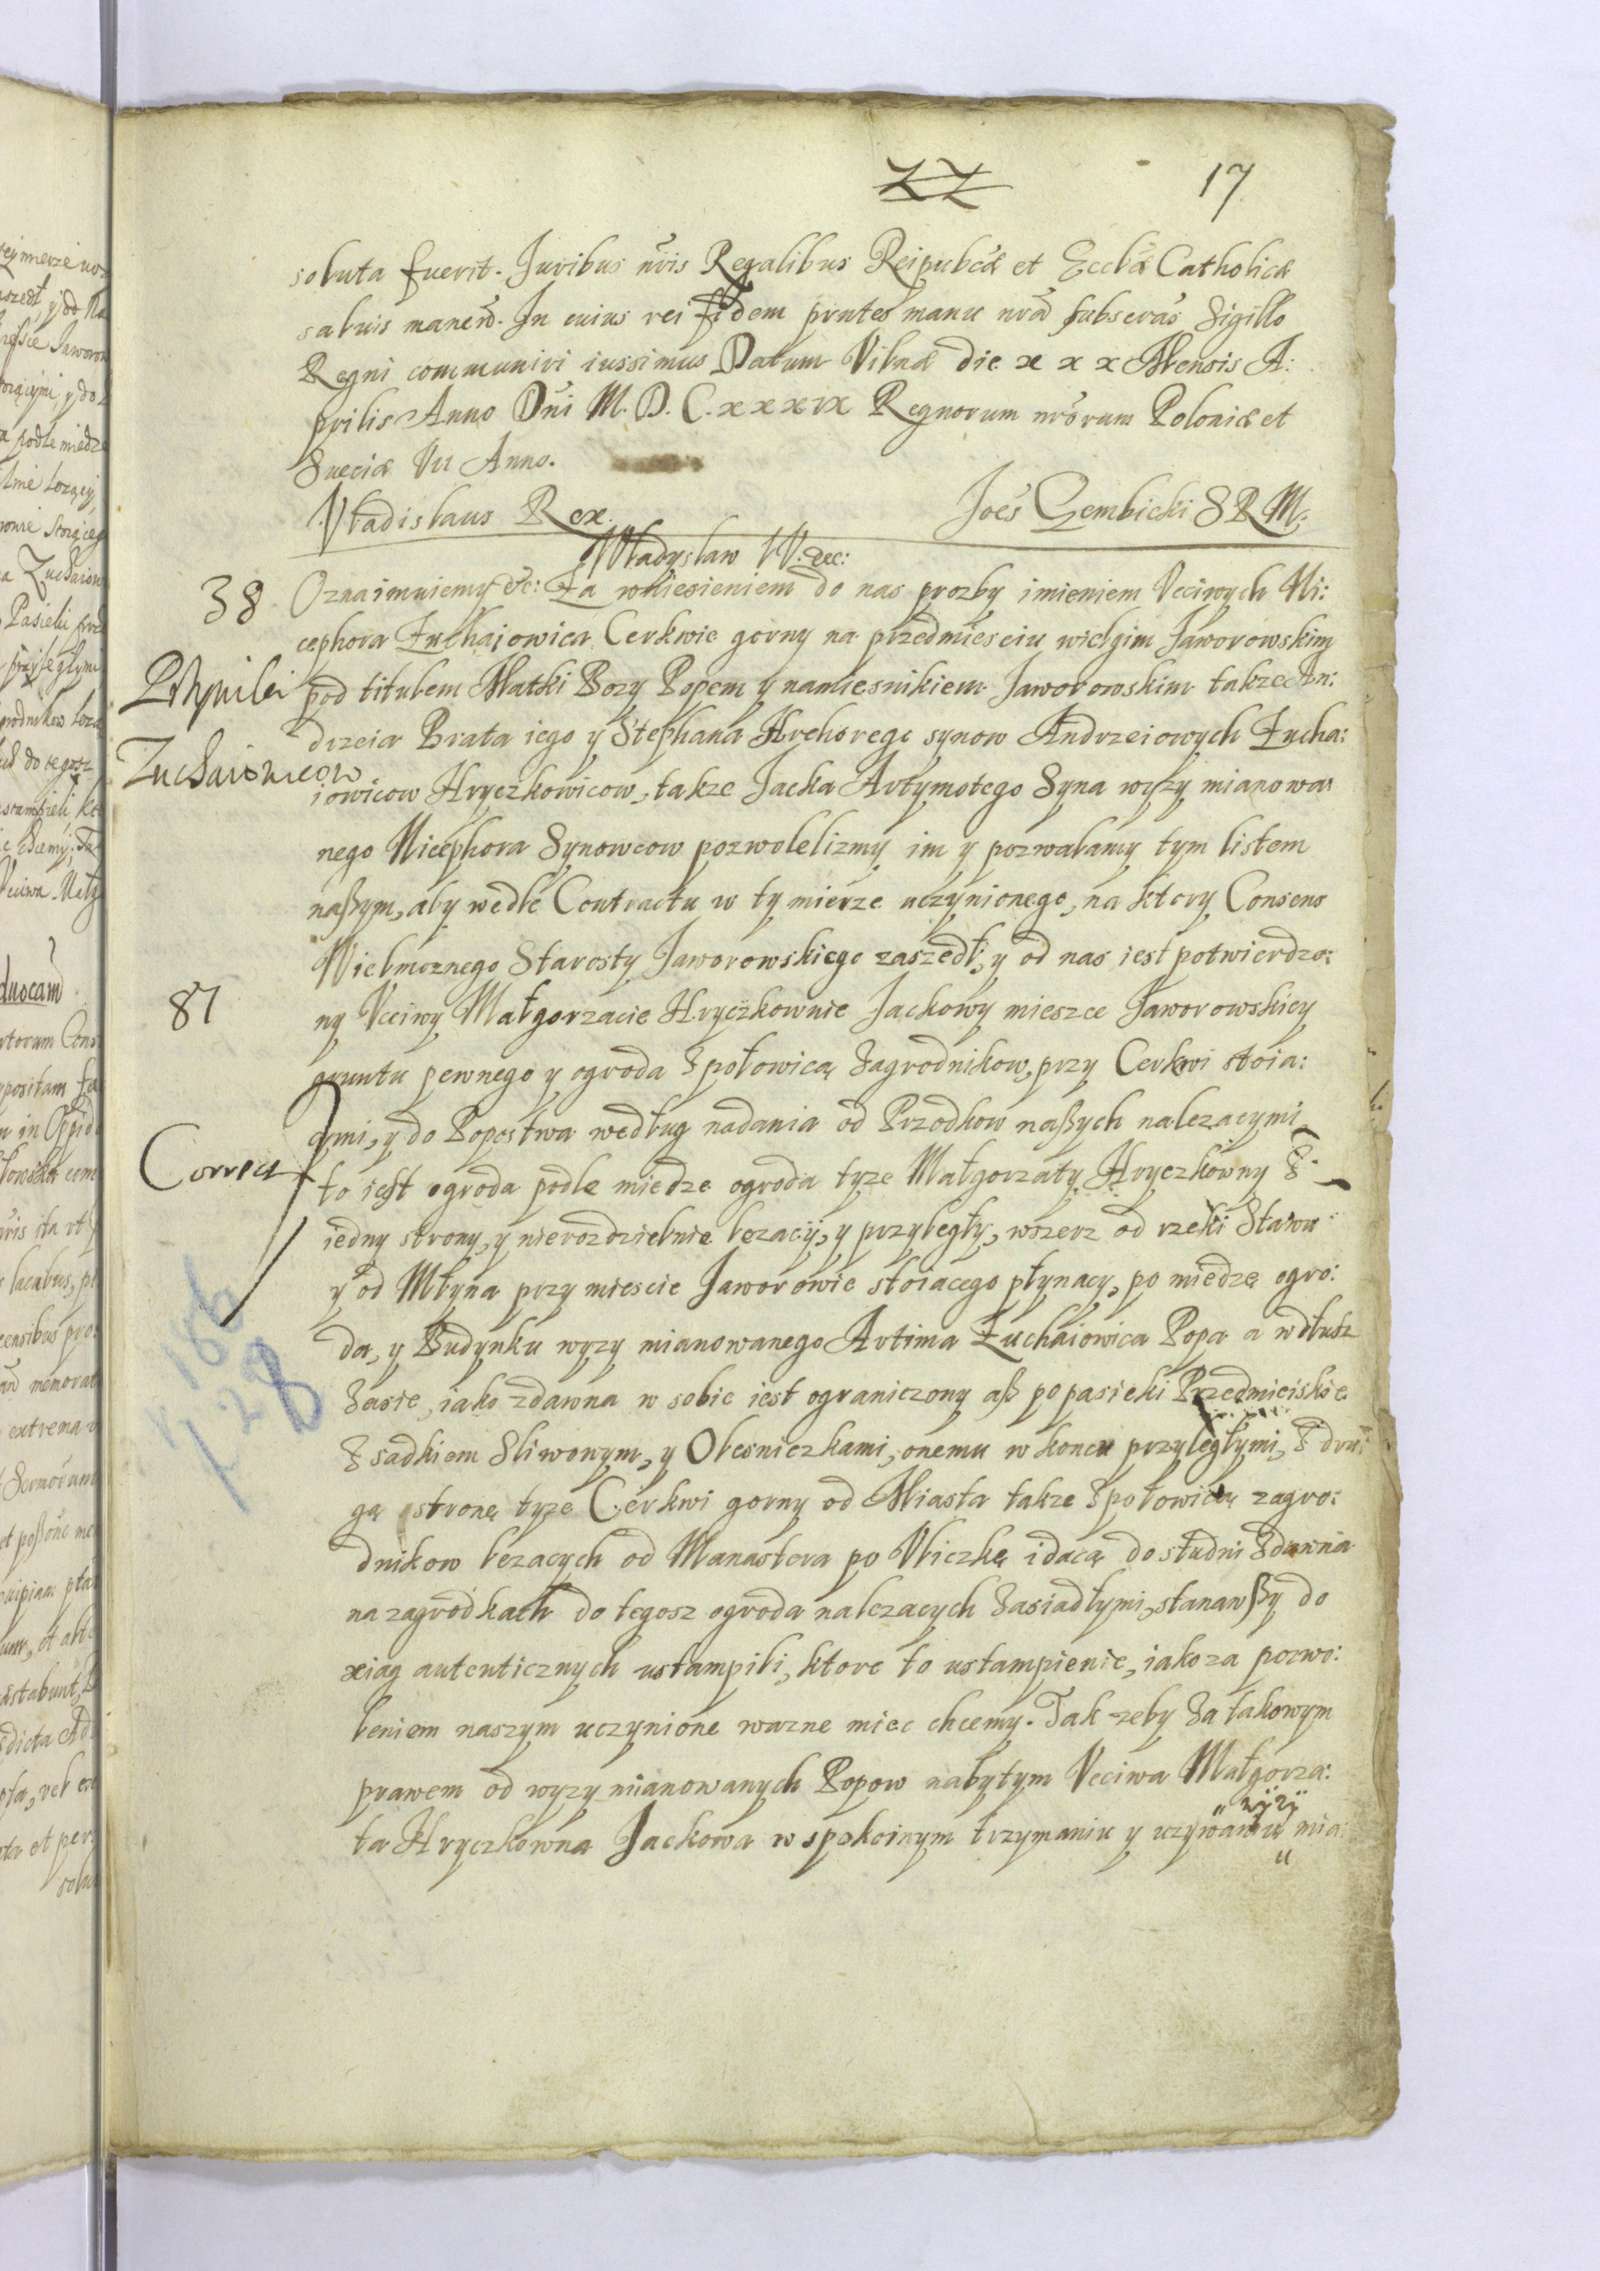 17
soluta fuerit. Juribus nris Regalibus Reipubcæ et Ecclæ Catholicæ
salvis manen. In cuius rei fidem prntes manu nra subscras Sigillo
Regni communiri iussimus Datum Vilnæ die xxx Mensis A:
prilis Anno Dni M.D.C.xxxix Regnorum nrorum Poloniæ et
Sueciæ VII Anno.
Vladislaus Rex. Joes Gembicki S R M:
Władysław IV. &c:
38 Oznaimuiemy &c: Za wniesieniem do nas prozby imieniem Vcciwych Ni:
cephora Łuchaiowica Cerkwie gorny na przedmiesciu wielgim Jaworowskim
pod titulem Matki Bozy Popem y namiesnikiem Jaworowskim takze An:
drzeia Brata iego y Stephana Hrehorego synow Andrzeiowych Łucha:
Zuchaiowicow
iowicow Hryczkowicow, takze Jacka Artymotego Syna wyzy mianowa:
nego Nicephora Synowcow pozwolelizmy im y pozwalamy tym listem
naßym, aby wedle Contractu w ty mierze uczynionego, na ktory Consens
Wielmoznego Starosty Jaworowskiego zaszedł, y od nas iest potwierdzo:
87 ny Vcciwy Małgorzacie Hryczkownie Jackowy mieszce Jaworowskiey
gruntu pewnego y ogroda z połowicą Zagrodnikow, przy Cerkwi stoia:
cymi, y do Popostwa według nadania od Przodkow naßych nalezacymi
to iest ogroda podle miedze ogroda tyze Małgorzaty Hryczkowny z
iedny strony, y nierozdzielnie lezacy, y przyległy, wszerz od rzeki Stawu
y od Młyna przy miescie Jaworowie stoiacego płynacy, po miedzę ogro:
da, y Budynku wyzy mianowanego Artima Łuchaiowica Popa a wdłusz
Zasie, iako zdawna w sobie iest ograniczony aß po pasieki Przedmieiskie
z sadkiem Sliwowym, y Olesniczkami, onemu w koncu przyległymi, z dru:
gą stronę tyze Cerkwi gorny od Miasta takze z połowicą zagro:
dnikow lezacych od Manastera po Vliczkę idacą do studni zdawna
na zagrodkach do tegosz ogroda nalezacych Zasiadłymi, stanawßy do
xiag autenticznych ustampili, ktore to ustampienie, iako za pozwo:
leniem naszym uczynione wazne miec chcemy. Tak zeby za takowym
prawem od wyzy mianowanych Popow nabytym Vcciwa Małgorza:
wÿzÿ
ta Hryczkowna Jackowa w spokoinym trzymaniu y uzywaniu mia: